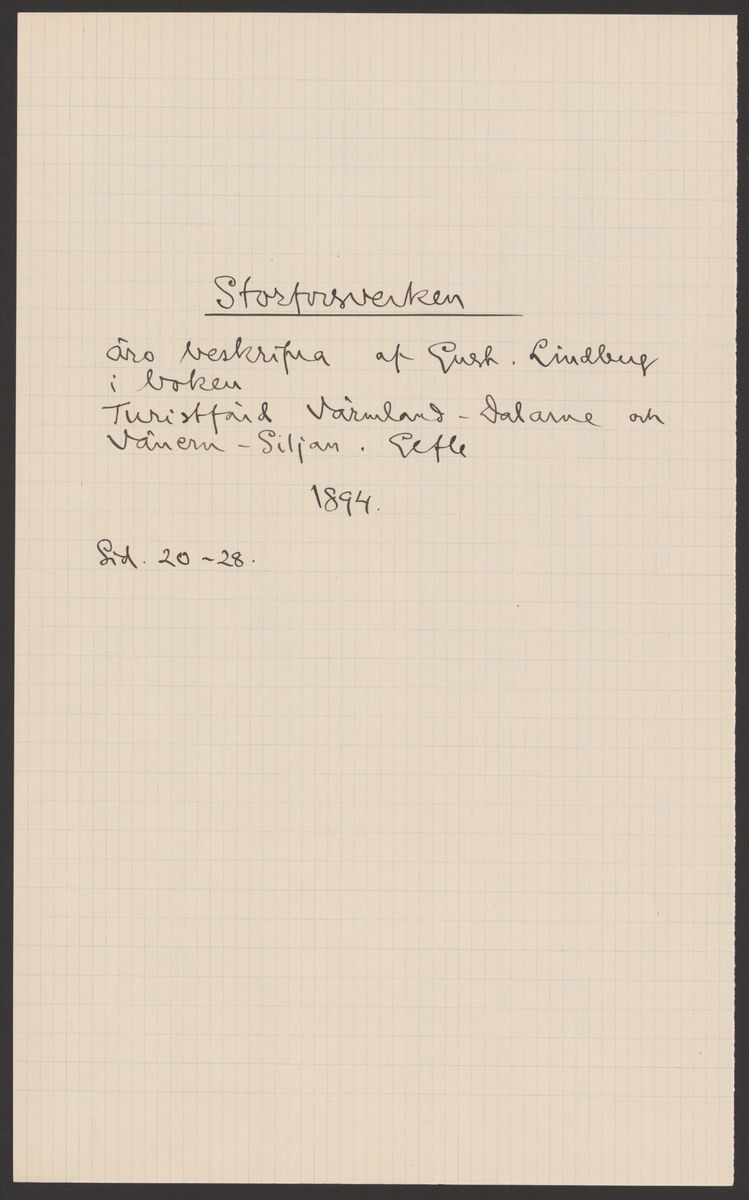 Storforsverken
äro beskrifna af Gust. Lindberg
i boken
Turistfärd Värmland - Dalarne och
Vänern - Siljan. Gefle
1894.
Sid. 20-28.